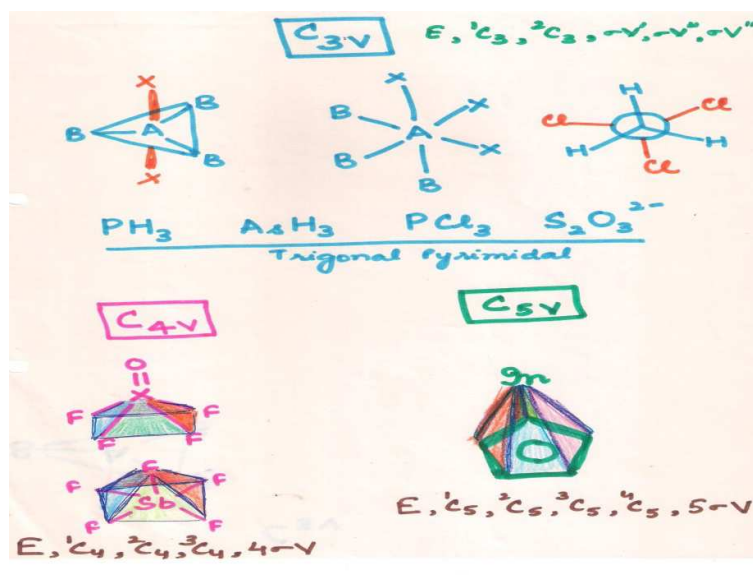 C3V E, ¹C₃, ²C₃, σV', σV'', σV'''
X
B
B A
B
X
X
B X
A
B X
B
H
Cl
Cl
H H
Cl
PH₃ AsH₃ PCl₃ S₂O₃²⁻
Trigonal Pyrimidal
C4V
C5V
O
X
F F
F F
F
F Sb F
F F
In
E, ¹C₄, ²C₄, ³C₄, 4σV
E, ¹C₅, ²C₅, ³C₅, ⁴C₅, 5σV